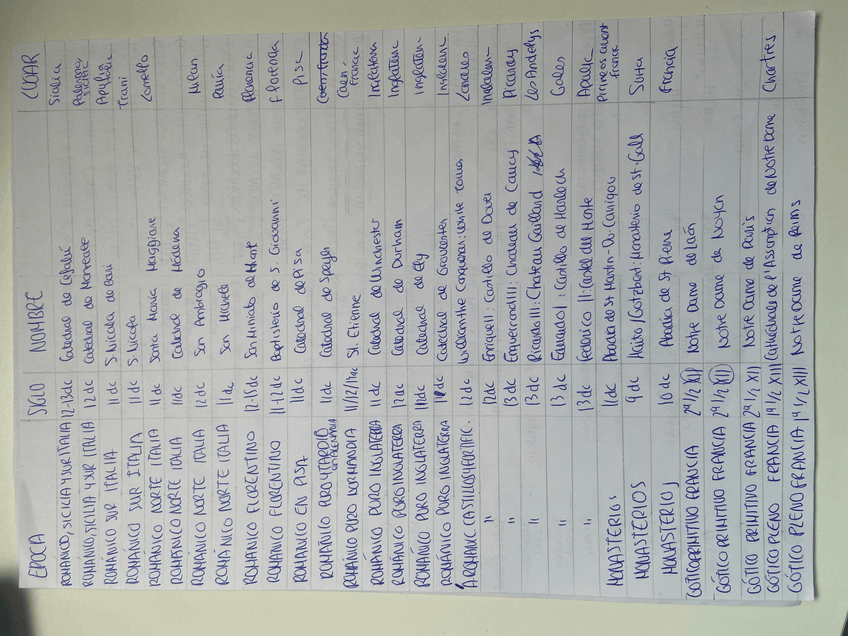 EPOCA SIGLO NOMBRE LUGAR
ROMÁNICO, SICILIA Y SUR ITALIA 12-13 dc Catedral de Cefalú Sicilia
ROMÁNICO, SICILIA Y SUR ITALIA 12 dc Catedral de Monreale Palermo Sicilia
ROMÁNICO SUR ITALIA 11 dc S. Nicola de Bari Apulia
ROMÁNICO SUR ITALIA 11 dc S. Nicola Trani
ROMÁNICO NORTE ITALIA 11 dc Santa Maria Maggiore Lomello
ROMÁNICO NORTE ITALIA 11 dc Catedral de Módena
ROMÁNICO NORTE ITALIA 12 dc San Ambrogio Milan
ROMÁNICO NORTE ITALIA 11 dc San Michele Pavia
ROMÁNICO FLORENTINO 12-15 dc San Miniato al Monte Florencia
ROMÁNICO FLORENTINO 11-12 dc Baptisterio de S. Giovanni Florencia
ROMÁNICO EN PISA 11 dc Catedral de Pisa Pisa
ROMÁNICO PURO Y TARDIO 11 dc Catedral de Speyer
ROMÁNICO PURO NORMANDIA 11/12/ St. Etienne Caen, Francia
ROMÁNICO PURO INGLATERRA 11 dc Catedral de Winchester Inglaterra
ROMÁNICO PURO INGLATERRA 12 dc Catedral de Durham Inglaterra
ROMÁNICO PURO INGLATERRA 11 dc Catedral de Ely Inglaterra
ROMÁNICO PURO INGLATERRA 11 dc Catedral de Inglaterra
A. ROMANIC CASTILLOS Y FORTIFIC. 12 dc William the Conqueror: White Tower Londres
" 12 dc Enrique II: Castillo de Dover Inglaterra
" 13 dc Enguerrand III: Chateau de Coucy Picardy
" 13 dc Ricardo III: Chateau Gaillard Les Andelys
" 13 dc Eduardo I: Castillo de Harlech Gales
" 13 dc Federico II: Castel del Monte Apulia
MONASTERIOS 11 dc Abadia de St Martin-Du-Canigou Pirineos orient Francia
MONASTERIOS 9 dc Haito/Gotzbert: Monasterio de St. Gall Suiza
MONASTERIOS 10 dc Abadia de St Pierre Francia
GÓTICO PRIMITIVO FRANCIA 2ª 1/2 XII Notre Dame de Laón
GÓTICO PRIMITIVO FRANCIA 2ª 1/2 XII Notre Dame de Noyon
GÓTICO PRIMITIVO FRANCIA 2ª 1/2 XII Notre Dame de Paris
GÓTICO PLENO FRANCIA 1ª 1/2 XIII Cathédrale de l'Assomption de Notre Dame Chartres
GÓTICO PLENO FRANCIA 1ª 1/2 XIII Notre Dame de Reims